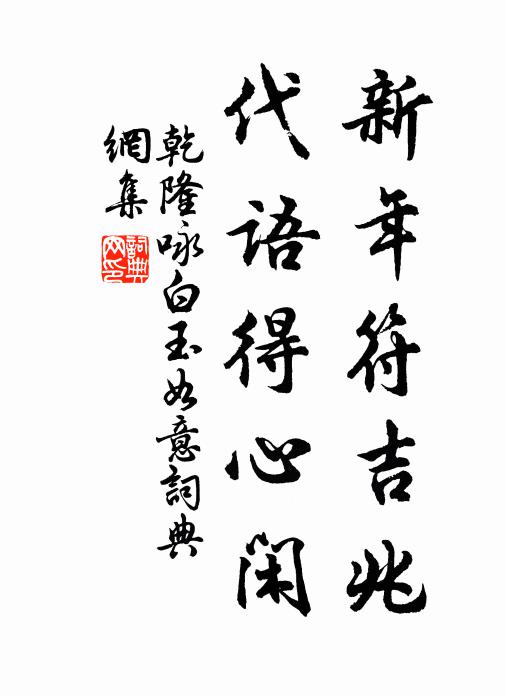 新年符吉兆
代語得心閑
乾隆咏白玉如意詞典
網集
詞典
网印